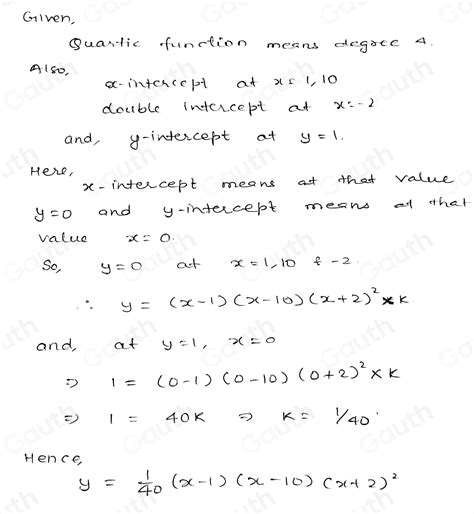 Given,
Quartic function means degree 4.
Also,
x-intercept at x = 1, 10
double intercept at x = -2
and, y-intercept at y = 1.
Here,
x-intercept means at that value
y = 0 and y-intercept means at that
value x = 0.
So, y = 0 at x = 1, 10 & -2.
∴ y = (x-1)(x-10)(x+2)² × K
and, at y = 1, x = 0
⇒ 1 = (0-1)(0-10)(0+2)² × K
⇒ 1 = 40K ⇒ K = 1/40.
Hence,
y = 1/40 (x-1)(x-10)(x+2)²